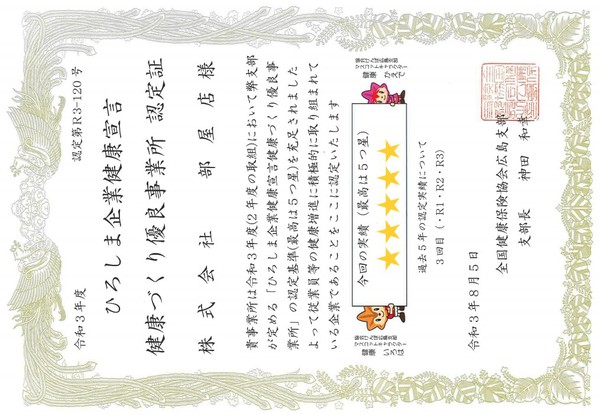 認定第R3-120号
令和３年度
ひろしま企業健康宣言
健康づくり優良事業所 認定証
株式会社 部屋店様
貴事業所は令和３年度(２年度の取組)において弊支部
が定める「ひろしま企業健康宣言健康づくり優良事
業所」の認定基準(最高は５つ星)を充足されました
よって従業員等の健康増進に積極的に取り組まれて
いる企業であることをここに認定いたします
協会けんぽ広島支部
マスコットキャラクター
健康 いろは
今回の実績（最高は５つ星）
★★★★★
協会けんぽ広島支部
マスコットキャラクター
健康 かえで
過去５年の認定実績について
３回目（・R1・R2・R3）
令和３年８月５日
全国健康保険協会広島支部
支部長 神田 和幸